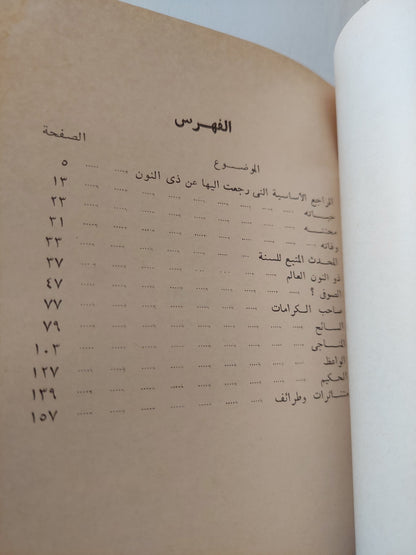 الفهرس
الموضوع الصفحة
المراجع الأساسية التى رجعت اليها عن ذى النون ٥
حياته ١٣
محنته ٢٣
وفاته ٣١
المحدث المتبع للسنة ٣٣
ذو النون العالم ٣٧
الصوفى ؟ ٤٧
صاحب الكرامات ٧٧
السائح ٧٩
المناجى ١٠٣
الواعظ ١٢٧
الحكيم ١٣٩
متناثرات وطرائف ١٥٧